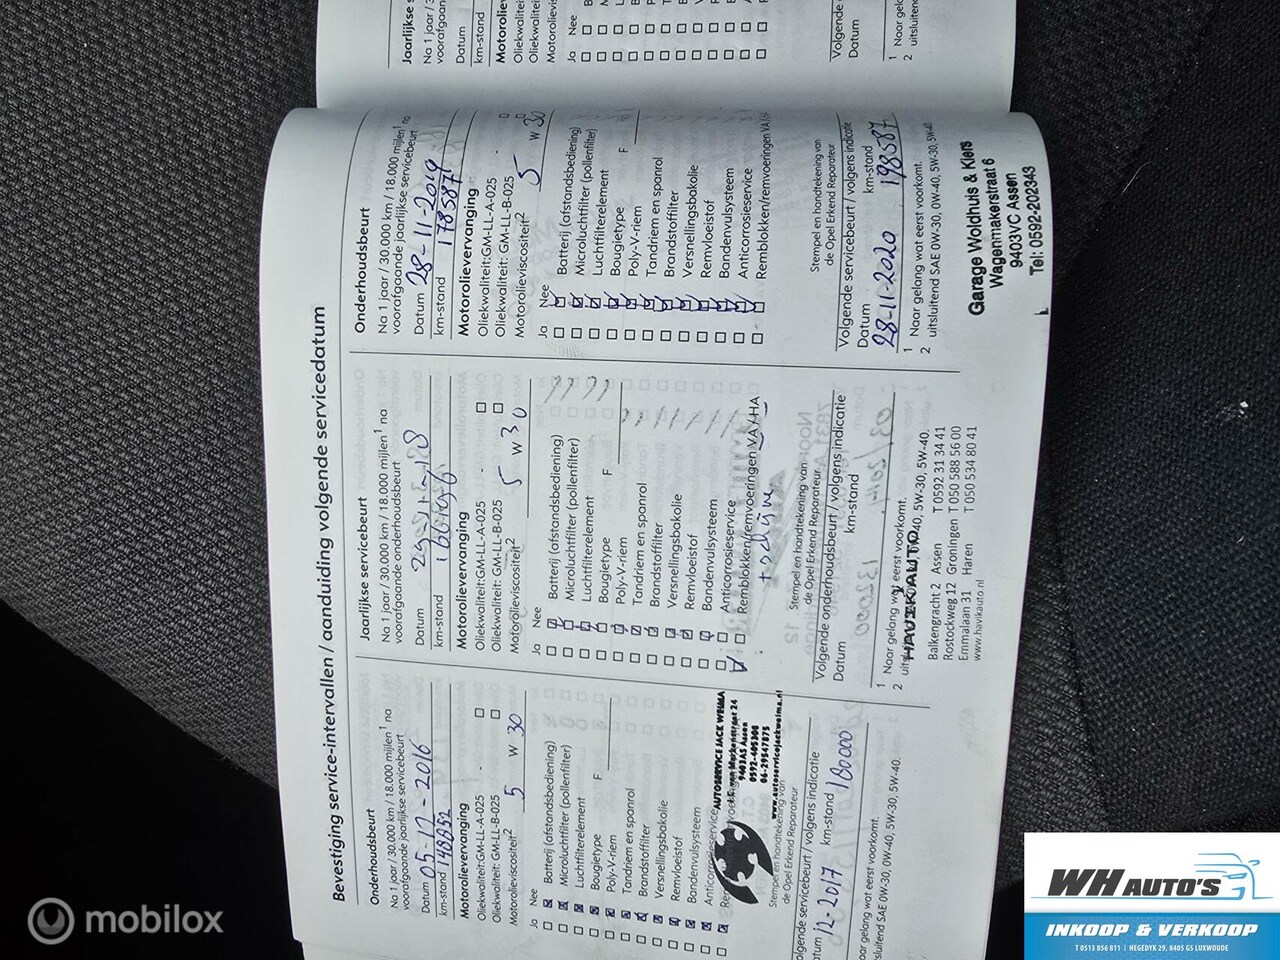 Bevestiging service-intervallen / aanduiding volgende servicedatum
Onderhoudsbeurt
Na 1 jaar / 30.000 km / 18.000 mijlen¹ na
voorafgaande jaarlijkse servicebeurt
Datum 05-12-2016
km-stand
Motorolievervanging
Oliekwaliteit:GM-LL-A-025
Oliekwaliteit: GM-LL-B-025
Motorolieviscositeit² 5 W 30
Ja Nee
Batterij (afstandsbediening)
Microluchtfilter (pollenfilter)
Luchtfilterelement
Bougietype F
Poly-V-riem
Tandriem en spanrol
Brandstoffilter
Versnellingsbakolie
Remvloeistof
Bandenvulsysteem
Anticorrosieservice
AUTOSERVICE JACK WEIMA
9403AS Assen
0592-405308
06-29547875
www.autoservicejackweima.nl
Stempel en handtekening van
de Opel Erkend Reparateur
olgende servicebeurt / volgens indicatie
atum 12-2017 km-stand 180000
aar gelang wat eerst voorkomt.
uitsluitend SAE 0W-30, 0W-40, 5W-30, 5W-40.
Jaarlijkse servicebeurt
Na 1 jaar / 30.000 km / 18.000 mijlen¹ na
voorafgaande onderhoudsbeurt
Datum
km-stand
Motorolievervanging
Oliekwaliteit:GM-LL-A-025
Oliekwaliteit: GM-LL-B-025
Motorolieviscositeit² 5 W 30
Ja Nee
Batterij (afstandsbediening)
Microluchtfilter (pollenfilter)
Luchtfilterelement
Bougietype F
Poly-V-riem
Tandriem en spanrol
Brandstoffilter
Versnellingsbakolie
Remvloeistof
Bandenvulsysteem
Anticorrosieservice
Remblokken/remvoeringen VA/HA
Stempel en handtekening van
de Opel Erkend Reparateur
Volgende onderhoudsbeurt / volgens indicatie
Datum km-stand
1 Naar gelang wat eerst voorkomt.
2 40, 5W-30, 5W-40.
Balkengracht 2 Assen T 0592 31 34 41
Rostockweg 12 Groningen T 050 588 56 00
Emmalaan 31 Haren T 050 534 80 41
www.havikauto.nl
Onderhoudsbeurt
Na 1 jaar / 30.000 km / 18.000 mijlen¹ na
voorafgaande jaarlijkse servicebeurt
Datum 28-11-2019
km-stand 178587
Motorolievervanging
Oliekwaliteit:GM-LL-A-025
Oliekwaliteit: GM-LL-B-025
Motorolieviscositeit² 5 W 30
Ja Nee
Batterij (afstandsbediening)
Microluchtfilter (pollenfilter)
Luchtfilterelement
Bougietype F
Poly-V-riem
Tandriem en spanrol
Brandstoffilter
Versnellingsbakolie
Remvloeistof
Bandenvulsysteem
Anticorrosieservice
Remblokken/remvoeringen
Stempel en handtekening van
de Opel Erkend Reparateur
Volgende servicebeurt / volgens indicatie
Datum km-stand
28-11-2020 198587
1 Naar gelang wat eerst voorkomt.
2 uitsluitend SAE 0W-30, 0W-40, 5W-30, 5W-40
Garage Woldhuis & Kiers
Wagenmakerstraat 6
9403VC Assen
Tel: 0592-202343
Jaarlijkse s
Na 1 jaar / 3
voorafgaan
Datum
km-stand
Motoroliev
Oliekwalite
Oliekwalite
Motorolievis
Ja Nee
Volgende
Datum
1 Naar gel
2 uitsluiten
mobilox
WH AUTO'S
INKOOP & VERKOOP
T 0513 856 811 | HEGEDYK 29, 8405 GS LUXWOUDE